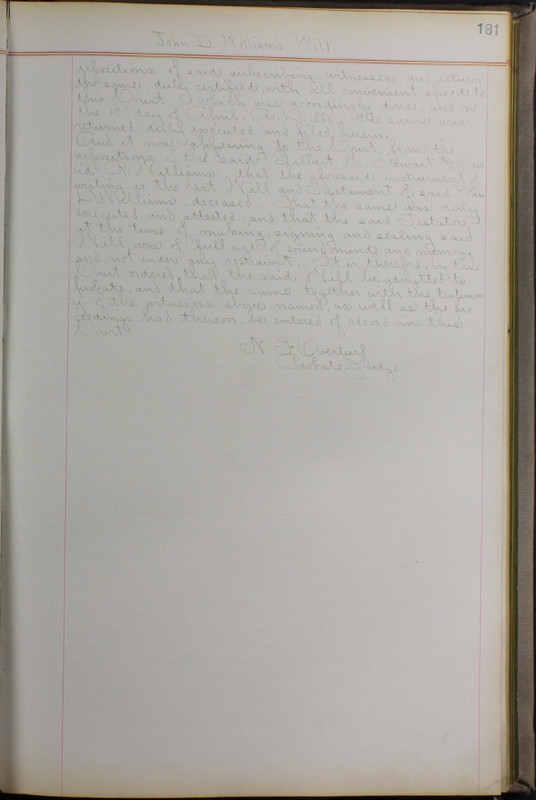 181
John D. William's Will
depositions of said subscribing witnesses, and return
the same, duly certified, with all convenient speed to
this Court. Which was accordingly done, and on
the 10" day of April. A. D. 1888, the same was
returned duly executed and filed herein.
And it now appearing to the Court, from the
depositions of the said Gilbert H. Stewart &
K. Williams, that the aforesaid instrument of
writing is the last Will and Testament of said
D. Williams, deceased. That the same was duly
executed and attested; and that the said Testator,
at the time of making, signing and sealing said
Will, was of full age, of sound mind and memory,
and not under any restraint. It is, therefore, by the
Court ordered, that the said Will be admitted to
probate, and that the same, together with the testimon
y of the witnesses above named, as well as the pro
ceedings had thereon, be entered of record in this
Court.
N. F. Overturf
Probate Judge